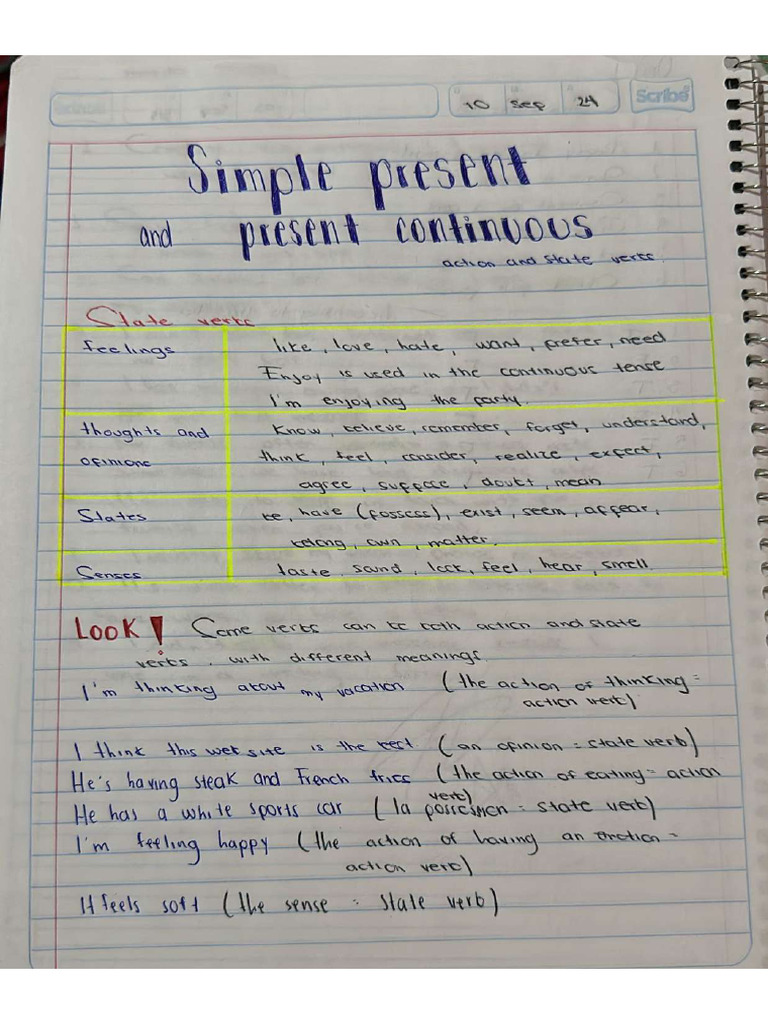 10 Sep 24 Scribe
Simple present
and present continuous
action and state verbs.
State verbs
feelings
like, love, hate, want, prefer, need
Enjoy is used in the continuous tense
I'm enjoying the party.
thoughts and
opinions
Know, believe, remember, forget, understand,
think, feel, consider, realize, expect,
agree, suppose, doubt, mean
States
be, have (possess), exist, seem, appear,
belong, own, matter.
Senses
taste, sound, look, feel, hear, smell
LOOK! Some verbs can be both action and state
verbs, with different meanings.
I'm thinking about my vacation (the action of thinking =
action verb)
I think this web site is the best (an opinion = state verb)
He's having steak and French fries (the action of eating = action
verb)
He has a white sports car (la possesion = state verb)
I'm feeling happy (the action of having an emotion =
action verb)
It feels soft (the sense = state verb)